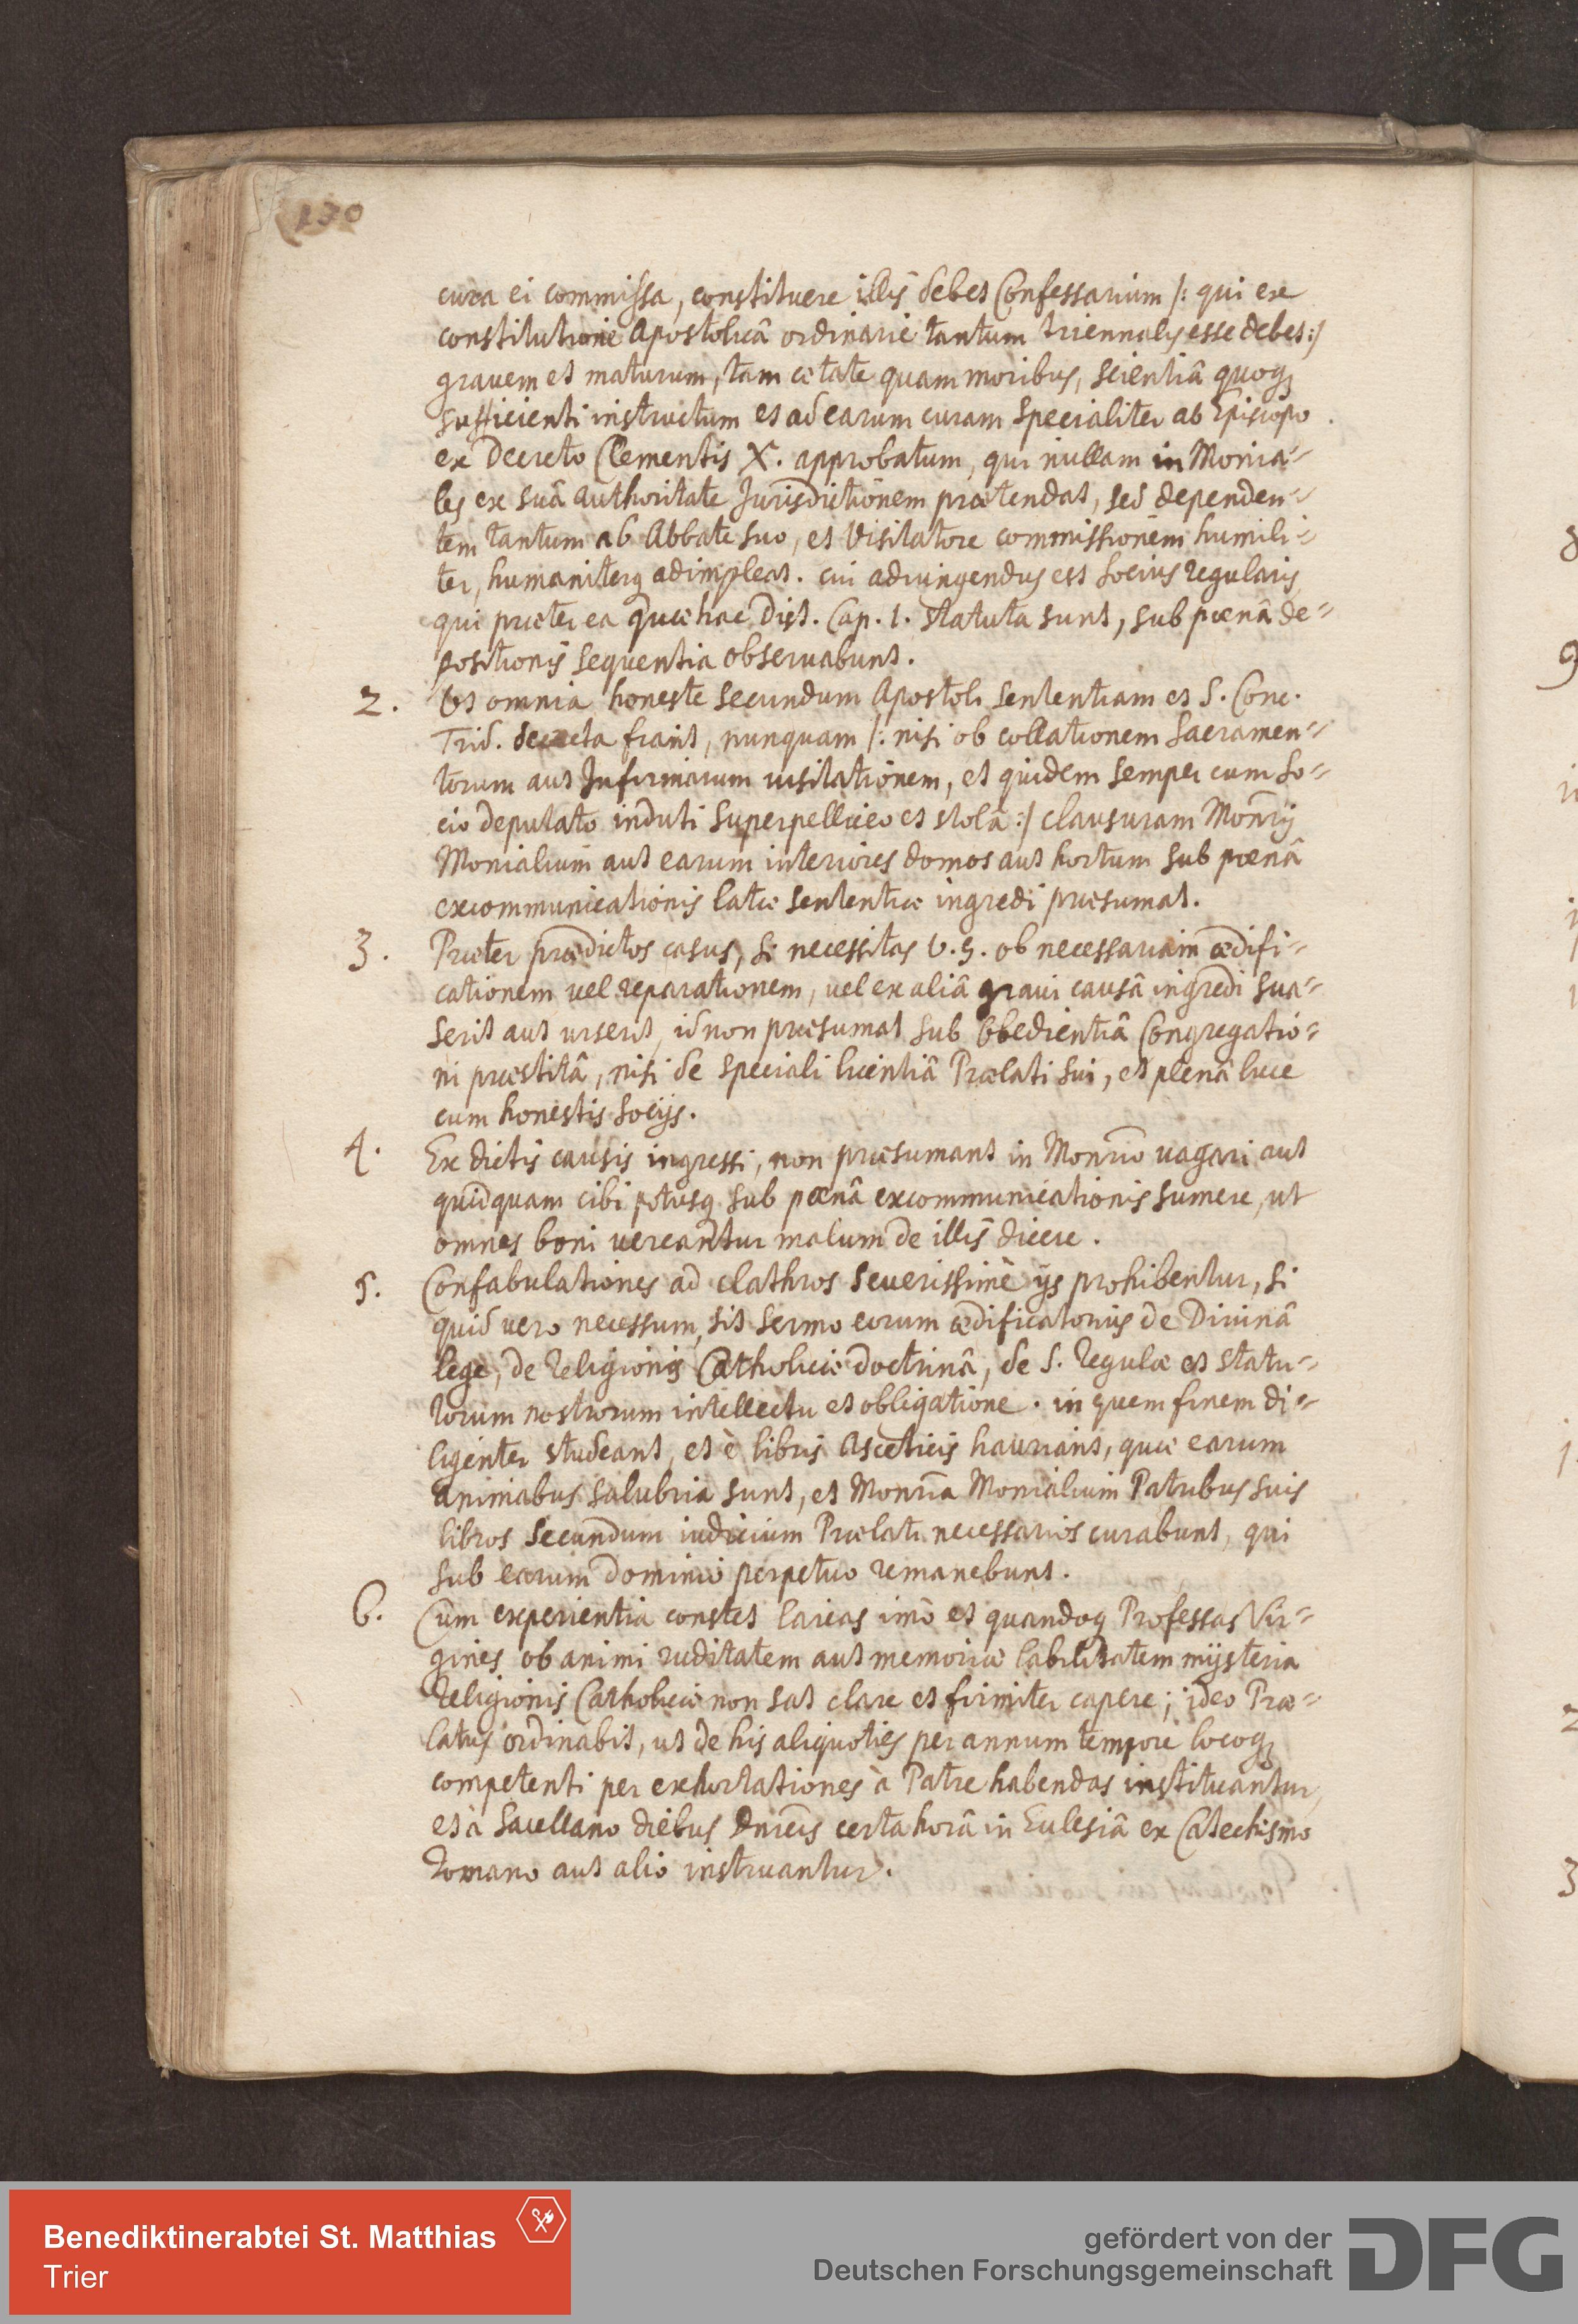 130
cura ei commissa, constituere illis debet Confessarium /: qui ex
constitutione Apostolicâ ordinarie tantum triennalis esse debet :/
grauem et maturum, tam ætate quam moribus, scientiâ quoq
sufficienti instructum et ad earum curam specialiter ab Episcopo
ex Decreto Clementis X. approbatum, qui nullam in Monia=
les ex suâ authoritate Jurisdictionem prætendat, sed dependen=
tem tantum ab Abbate suo, et Visitatore commissionem humili=
ter, humaniterq adimpleat. cui adiungendus est socius regularis
qui præter ea quæ hac Dist. Cap. 1. statuta sunt, sub pœnâ de=
positionis sequentia obseruabunt.
2. Ut omnia honeste secundum Apostoli sententiam et S. Conc.
Trid. decreta fiant, nunquam /: nisi ob collationem Sacramen=
torum aut Infirmarum uisitationem, et quidem semper cum So=
cio deputato induti superpelliceo et stolâ :/ clausuram Monrij
Monialium aut earum interiores domos aut hortum sub pœnâ
excommunicationis latæ sententiæ ingredi præsumat.
3. Præter prædictos casus, si necessitas V. G. ob necessariam ædifi=
cationem uel reparationem, uel ex aliâ graui causâ ingredi sua=
serit aut urserit, id non præsumat sub Obedientiâ Congregatio=
ni præstitâ, nisi de speciali licentiâ Prælati sui, et plenâ luce
cum honestis socijs.
4. Ex dictis causis ingressi, non præsumant in Monrio uagari aut
quidquam cibi potusq sub pœnâ excommunicationis sumere, ut
omnes boni uereantur malum de illis dicere.
5. Confabulationes ad clathros seuerissimè ijs prohibentur, si
quid uero necessum, sit sermo eorum ædificatorius de Diuinâ
lege, de religionis Catholicæ doctrinâ, de S. Regulæ et statu=
torum nostrorum intellectu et obligatione. in quem finem di=
ligenter studeant, et è libris Asceticis hauriant, quæ earum
animabus salubria sunt, et Monria Monialium Patribus suis
libros secundum iudicium Prælati necessarios curabunt, qui
sub earum dominio perpetuo remanebunt.
6. Cum experientia constet laicas imò et quandoq Professas Vir=
gines ob animi ruditatem aut memoriæ labilitatem mysteria
religionis Catholicæ non sat clare et firmiter capere; ideo Præ=
latus ordinabit, ut de his aliquoties per annum tempore locoq
competenti per exhortationes à Patre habendas instituantur,
et à Sacellano diebus Dnicis certa horâ in Ecclesiâ ex Catechismo
Romano aut alio instruantur.
Benediktinerabtei St. Matthias
Trier
gefördert von der
Deutschen Forschungsgemeinschaft
DFG